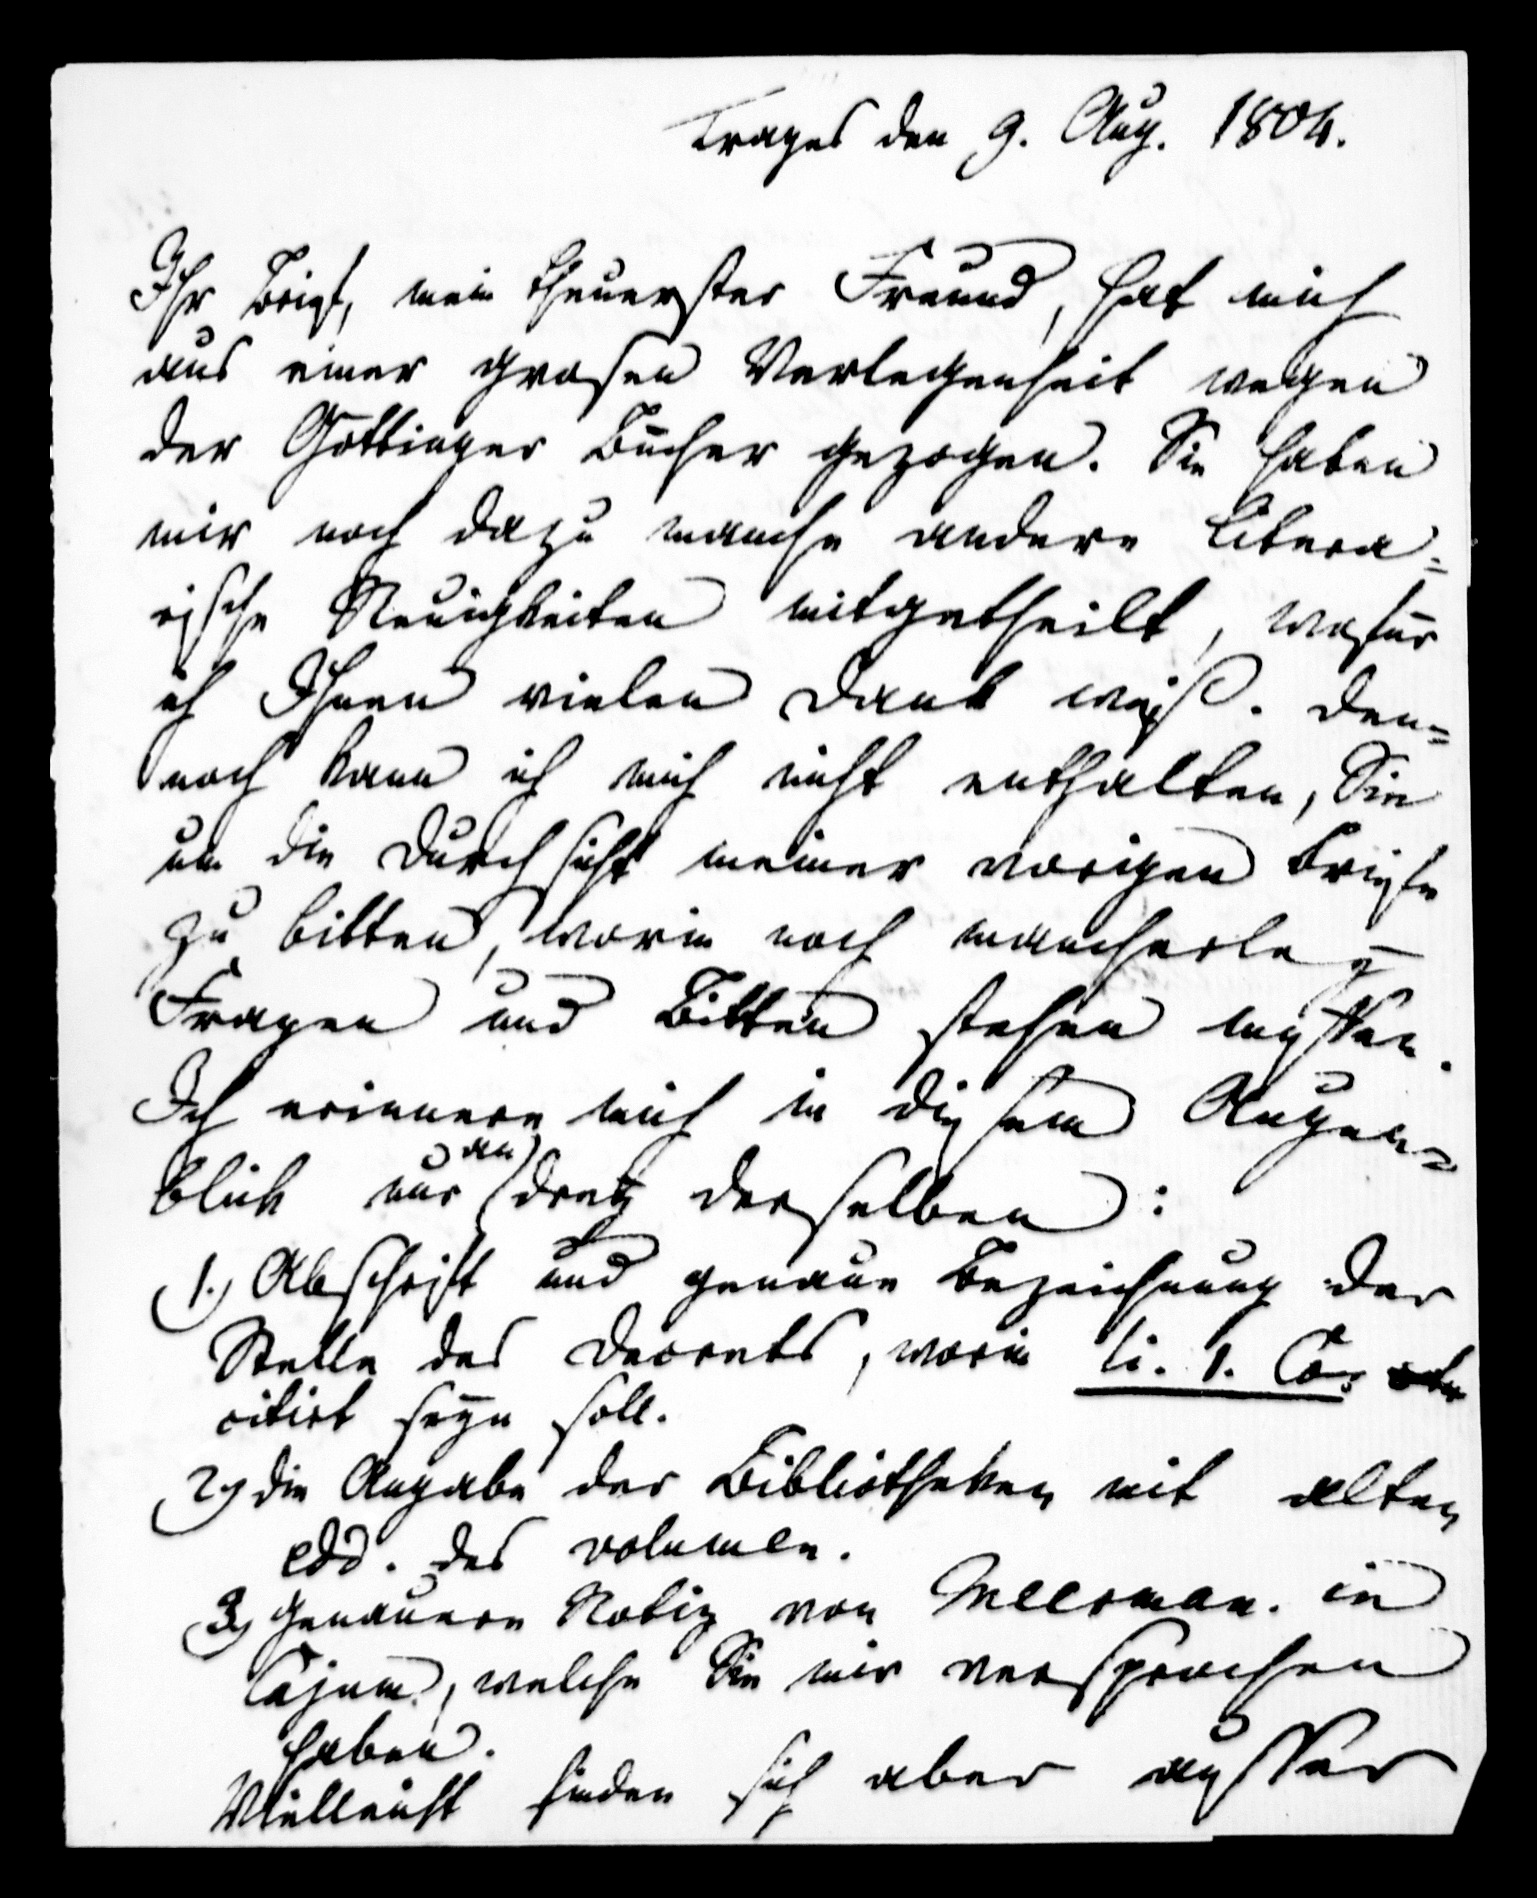 Trages den 9. Aug. 1804.
Ihr Brief, mein theuerster Freund, hat mich
aus einer grosen Verlegenheit wegen
der Göttinger Bücher gezogen. Sie haben
mir noch dazu manche andere litera=
rische Neuigkeiten mitgetheilt, wofür
ich Ihnen vielen Dank weiß. Den=
noch kann ich mich nicht enthalten, Sie
um die Durchsicht meiner vorigen Briefe
zu bitten, worin noch mancherley
Fragen und Bitten stehen müssen.
Ich erinnere mich in diesem Augen=
blick nur an drey derselben:
1.) Abschrift und genaue Bezeichnung der
Stelle des Decrets, worin li. 1. Co.
citirt seyn soll.
2.) die Angabe der Bibliotheken mit alten
edd. des volumen.
3.) Genauere Notiz von Meerman. in
Cujam., welche Sie mir versprochen
haben.
Vielleicht finden sich aber ausser